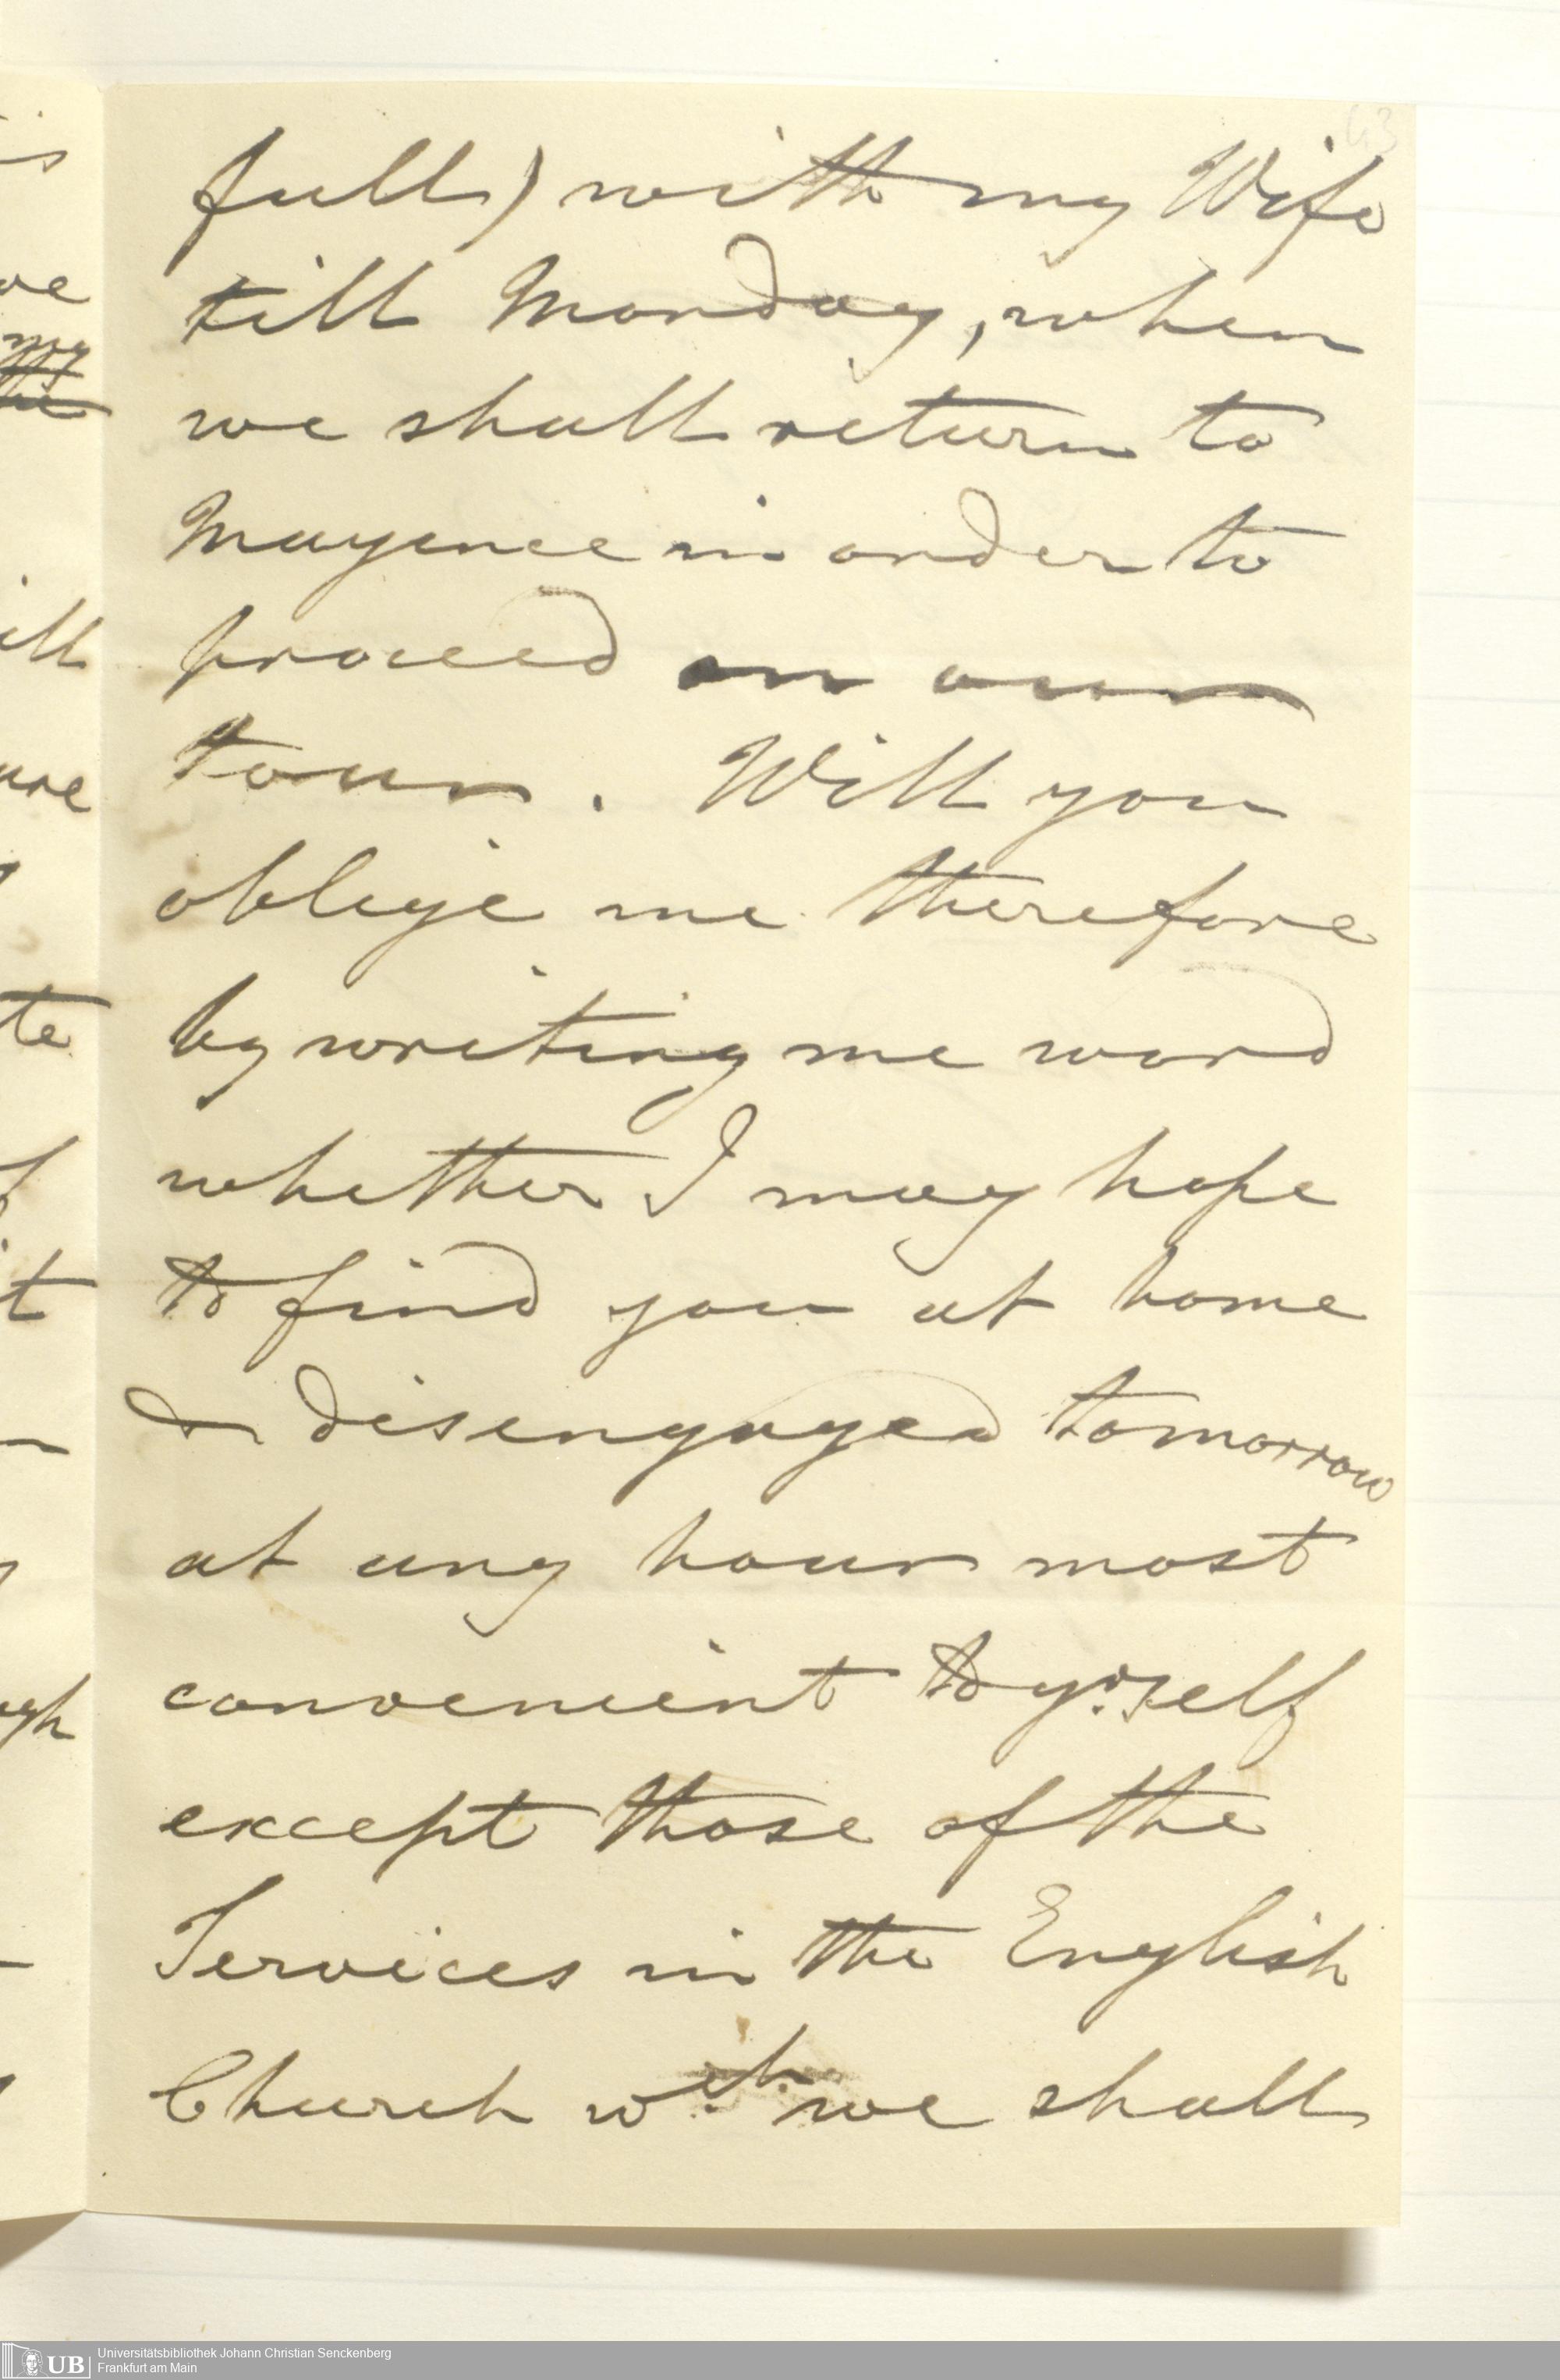 43
full) with my Wife
till Monday, when
we shall return to
Mayence in order to
proceed on our
tour. Will you
oblige me therefore
by writing me word
whether I may hope
to find you at home
& disengaged tomorrow
at any hour most
convenient to yr.self
except those of the
Services in the English
Church wch. we shall
UB
Universitätsbibliothek Johann Christian Senckenberg
Frankfurt am Main